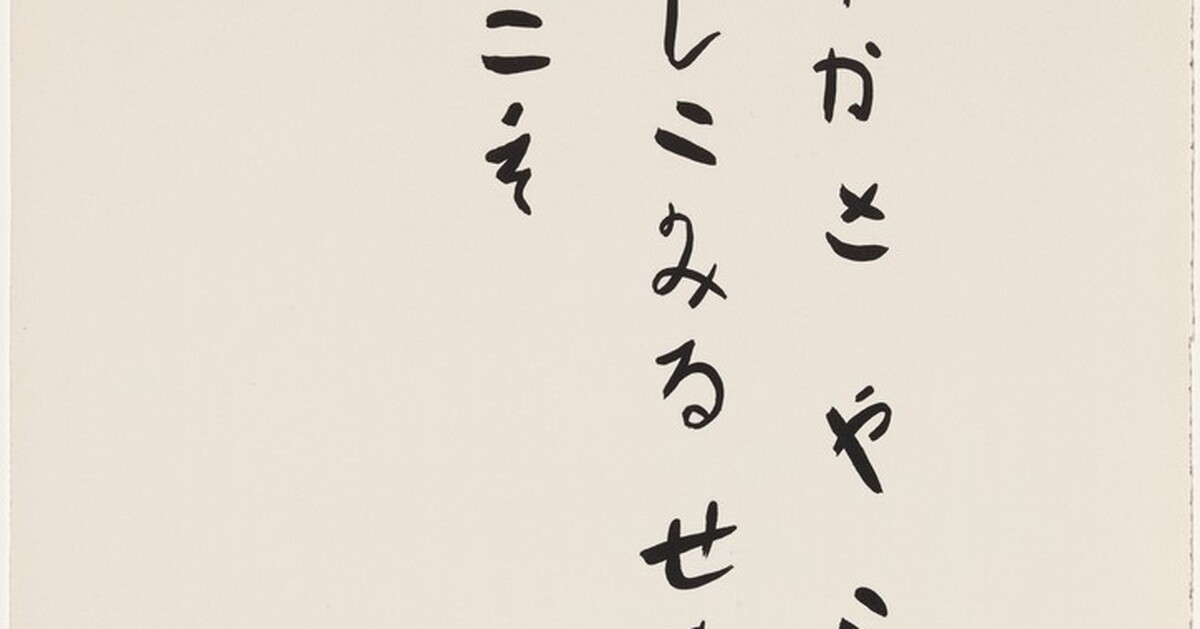 かさ や
しこみる せ
こそ